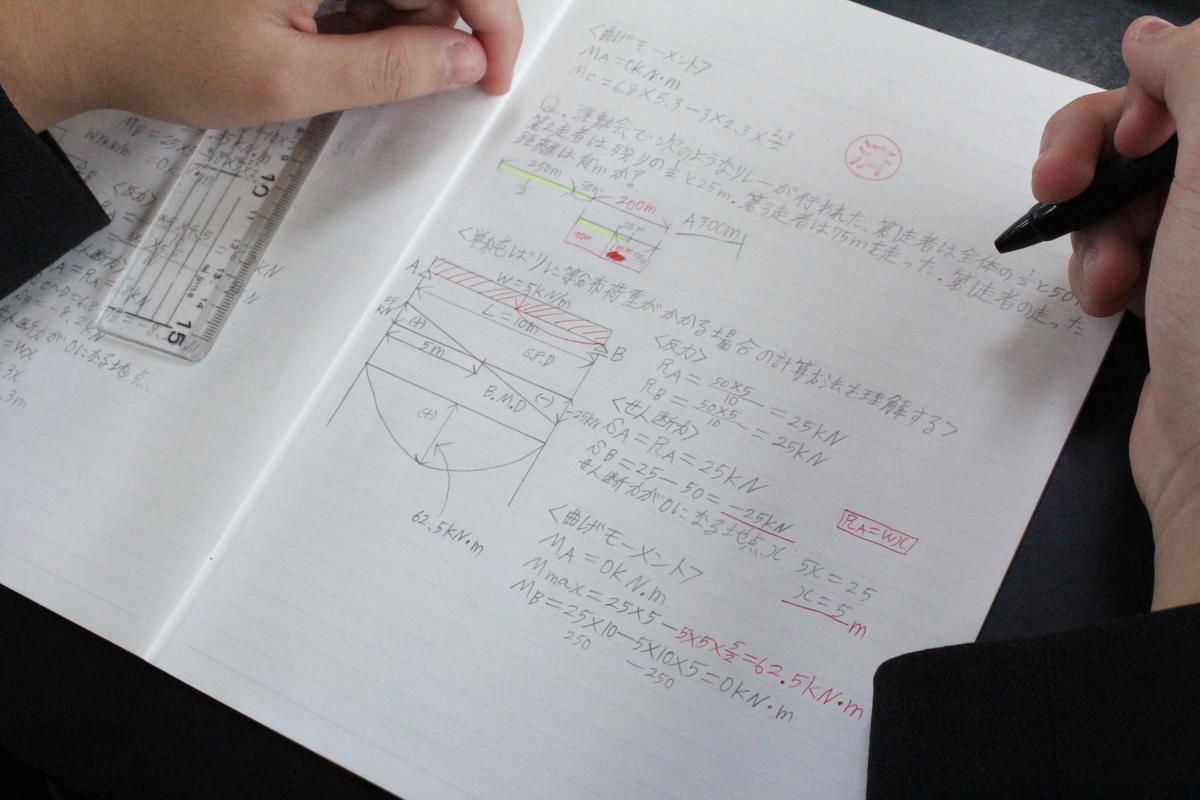 <曲げモーメント>
MA=0kN・m
Mc=6.8×5.3−3×2.3×2.3/2
Q.運動会で、次のようなリレーが行われた。第1走者は全体の1/2と50m
第2走者は残りの1/2と25m。第3走者は75mを走った。第1走者の走った
距離は何mか?
250m
1/2
50m
200m
A300m
100m
<単純ばりに等分布荷重がかかる場合の計算方法を理解する>
A
W=5kN/m
L=10m
B
25
kN
(+)
S.F.D
5m
(−)
−25kN
B.M.D
(+)
62.5kN・m
<反力>
RA=50×5/10=25kN
RB=50×5/10=25kN
<せん断力>
SA=RA=25kN
SB=25−50=−25kN
せん断力が0になる地点x
RA=wx
5x=25
x=5m
<曲げモーメント>
MA=0kN・m
Mmax=25×5−5×5×5/2=62.5kN・m
MB=25×10−5×10×5=0kN・m
250
−250
<反力>
10
11
13
14
15